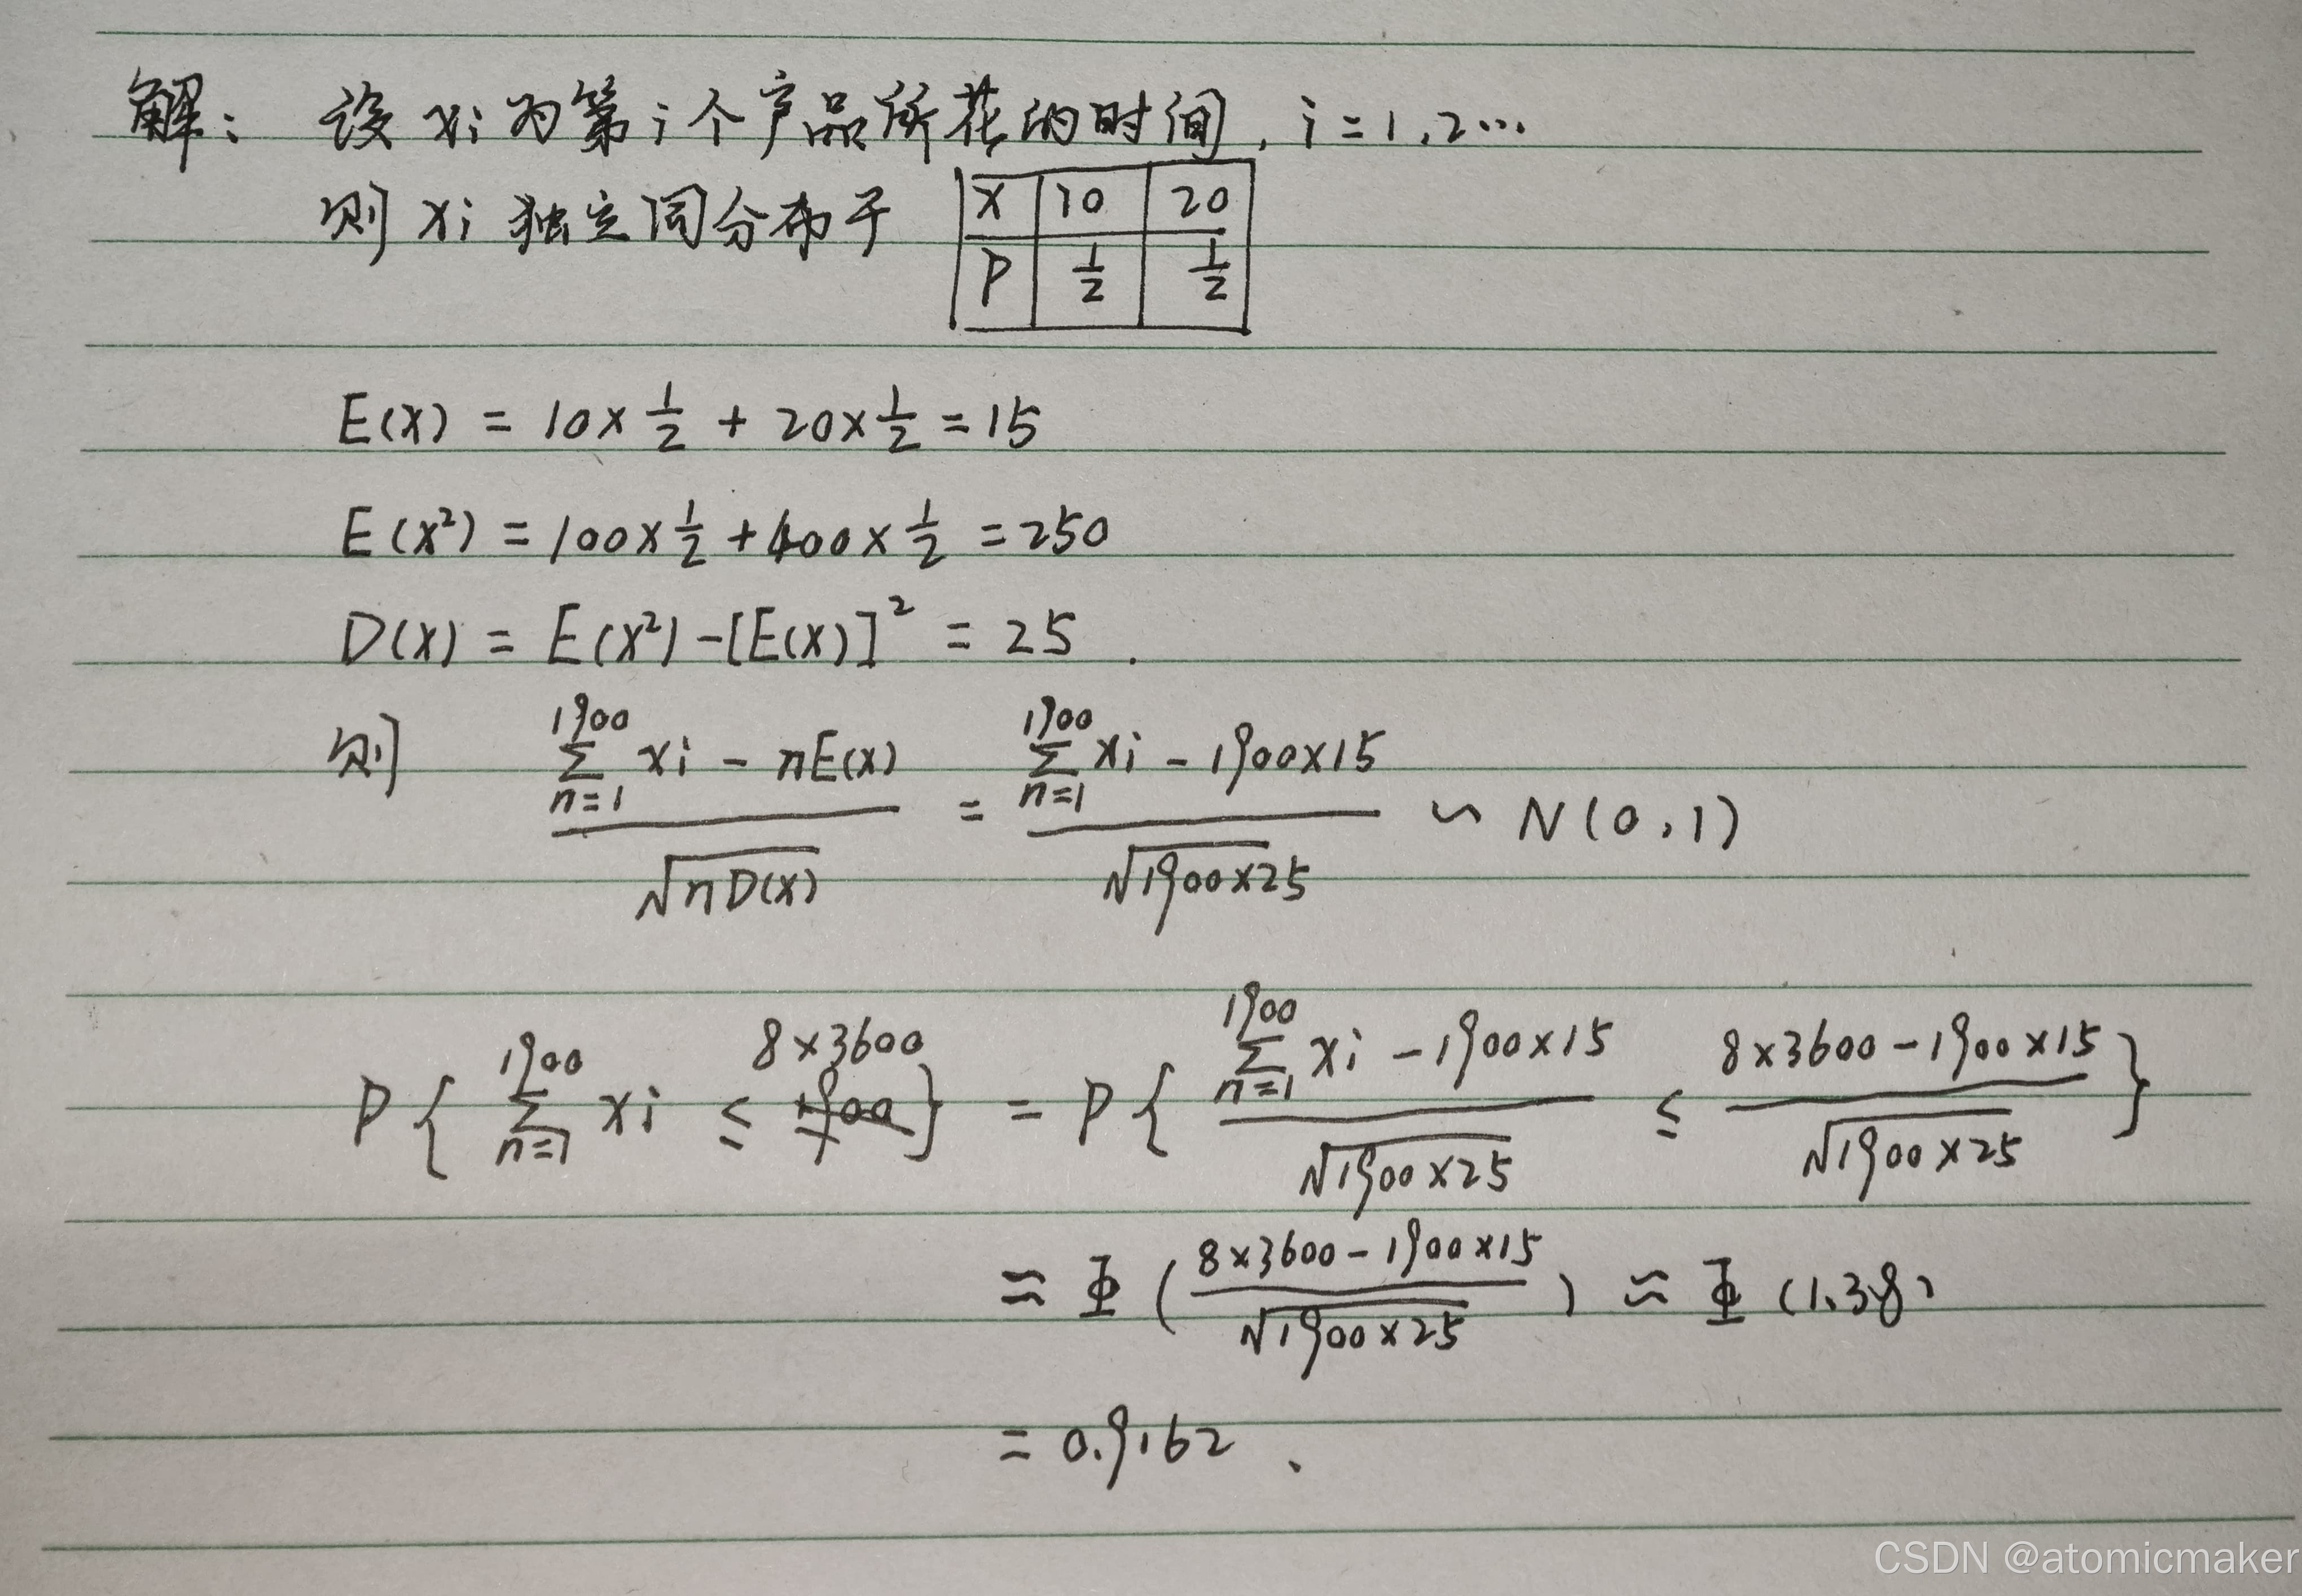 解: 设 xi 为第 i 个产品所花的时间, i=1,2…
则 xi 独立同分布于
X 10 20
P 1/2 1/2
E(X) = 10×1/2 + 20×1/2 = 15
E(X²) = 100×1/2 + 400×1/2 = 250
D(X) = E(X²)-[E(X)]² = 25 .
则 (∑_{n=1}^{1900} xi - nE(X))/√(nD(X)) = (∑_{n=1}^{1900} xi - 1900×15)/√(1900×25) ∽ N(0,1)
P{ ∑_{n=1}^{1900} xi ≤ 8×3600 } = P{ (∑_{n=1}^{1900} xi - 1900×15)/√(1900×25) ≤ (8×3600-1900×15)/√(1900×25) }
≈ Φ((8×3600-1900×15)/√(1900×25)) ≈ Φ(1.38)
= 0.9162 、
CSDN @atomicmaker